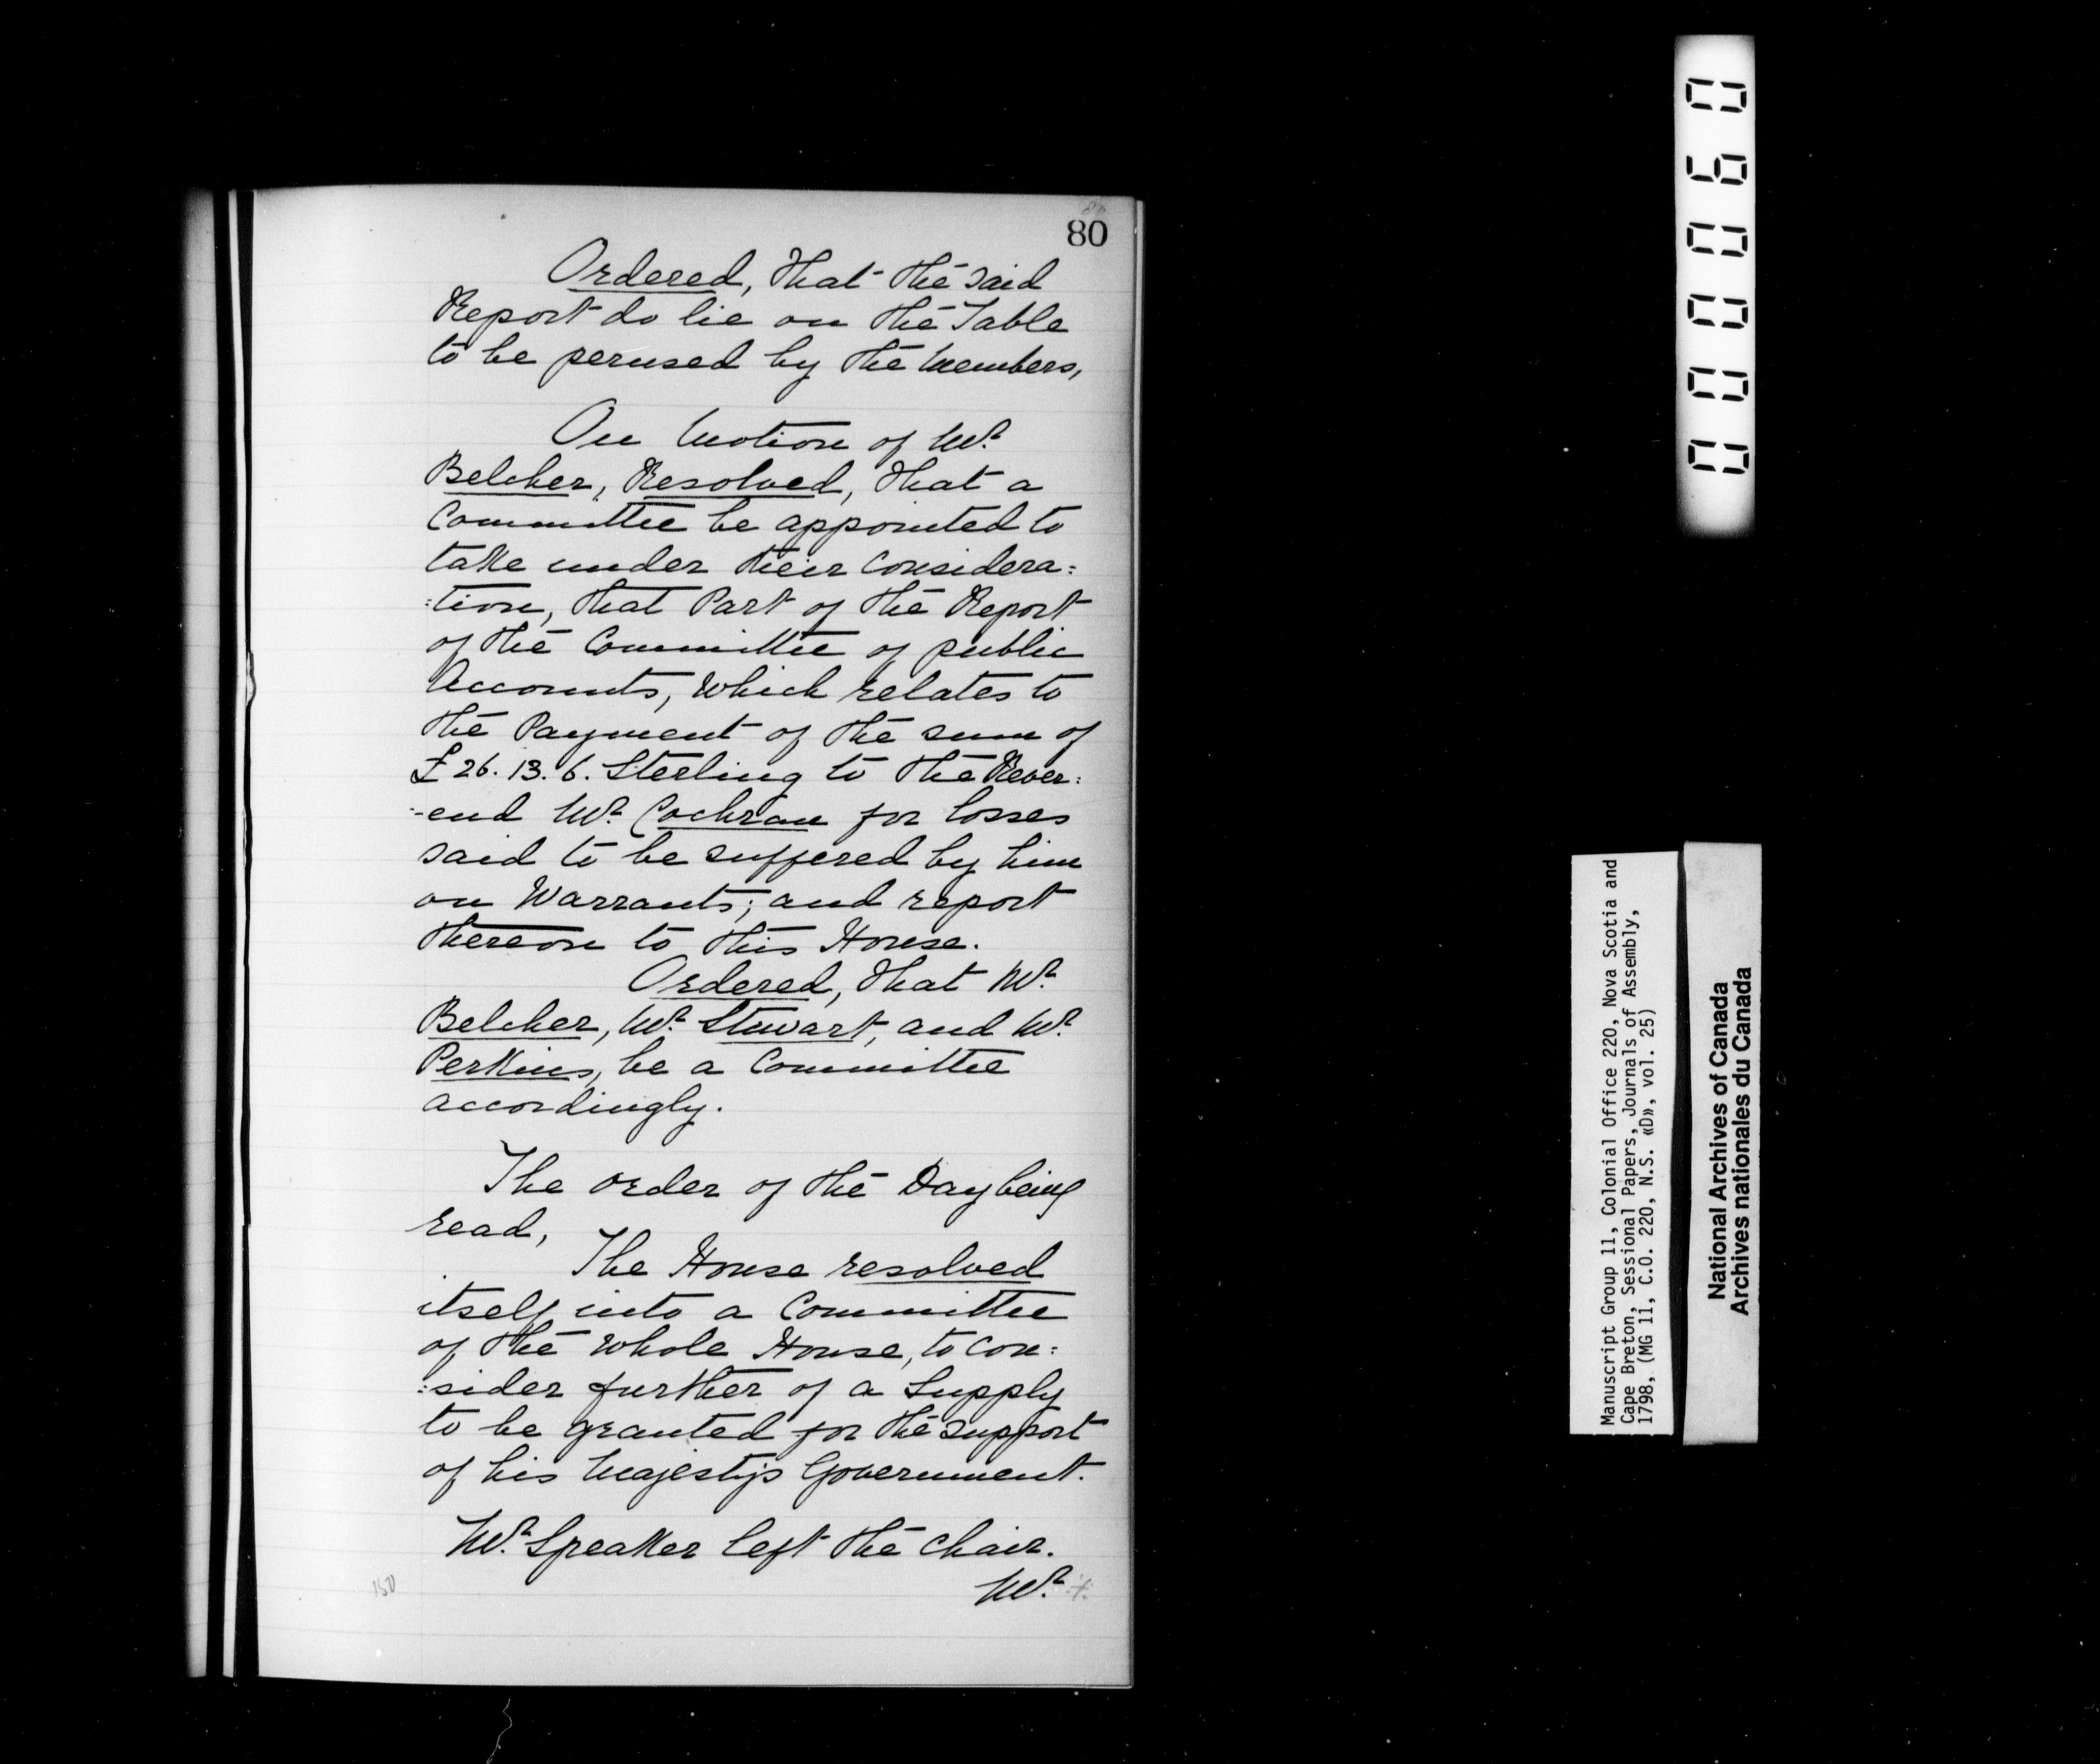 80
80
Ordered, that the said
Report do lie on the Table
to be perused by the Members,
On Motion of Mr.
Belcher, Resolved, that a
Committee be appointed to
take under their Considera=
=tion, that Part of the Report
of the Committee of public
Accounts, which relates to
the Payment of the sum of
£26.13.6. Sterling to the Rever=
=end Mr. Cochran for losses
said to be suffered by him
on Warrants; and report
thereon to this House.
Ordered, that Mr.
Belcher, Mr. Stewart, and Mr.
Perkins, be a Committee
accordingly.
The order of the Day being
read,
The House resolved
itself into a Committee
of the whole House, to con=
=sider further of a Supply
to be granted for the support
of his Majesty's Government.
Mr. Speaker left the Chair.
Mr.
150
000060
Manuscript Group 11, Colonial Office 220, Nova Scotia and
Cape Breton, Sessional Papers, Journals of Assembly,
1798, (MG 11, C.O. 220, N.S. «D», vol. 25)
National Archives of Canada
Archives nationales du Canada